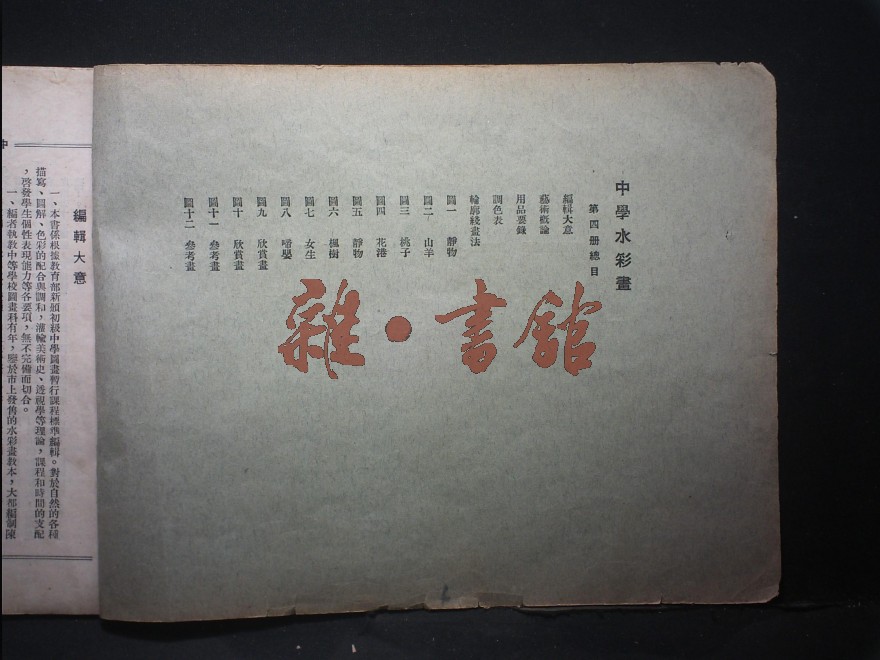 中學水彩畫
第四册總目
編輯大意
藝術概論
用品要錄
調色表
輪廓綫畫法
圖一 靜物
圖二 山羊
圖三 桃子
圖四 花港
圖五 靜物
圖六 楓樹
圖七 女生
圖八 嗜嬰
圖九 欣賞畫
圖十 欣賞畫
圖十一 參考畫
圖十二 參考畫
雜·書館
中
編輯大意
一、本書係根據教育部新頒初級中學圖畫暫行課程標準編輯。對於自然的各種
描寫、圖解、色彩的配合與調和，灌輸美術史、透視學等理論，課程和時間的支配
，啓發學生個性表現能力等各要項，無不完備而切合。
一、編者執教中等學校圖畫科有年，鑒於市上發售的水彩畫教本，大都編制陳